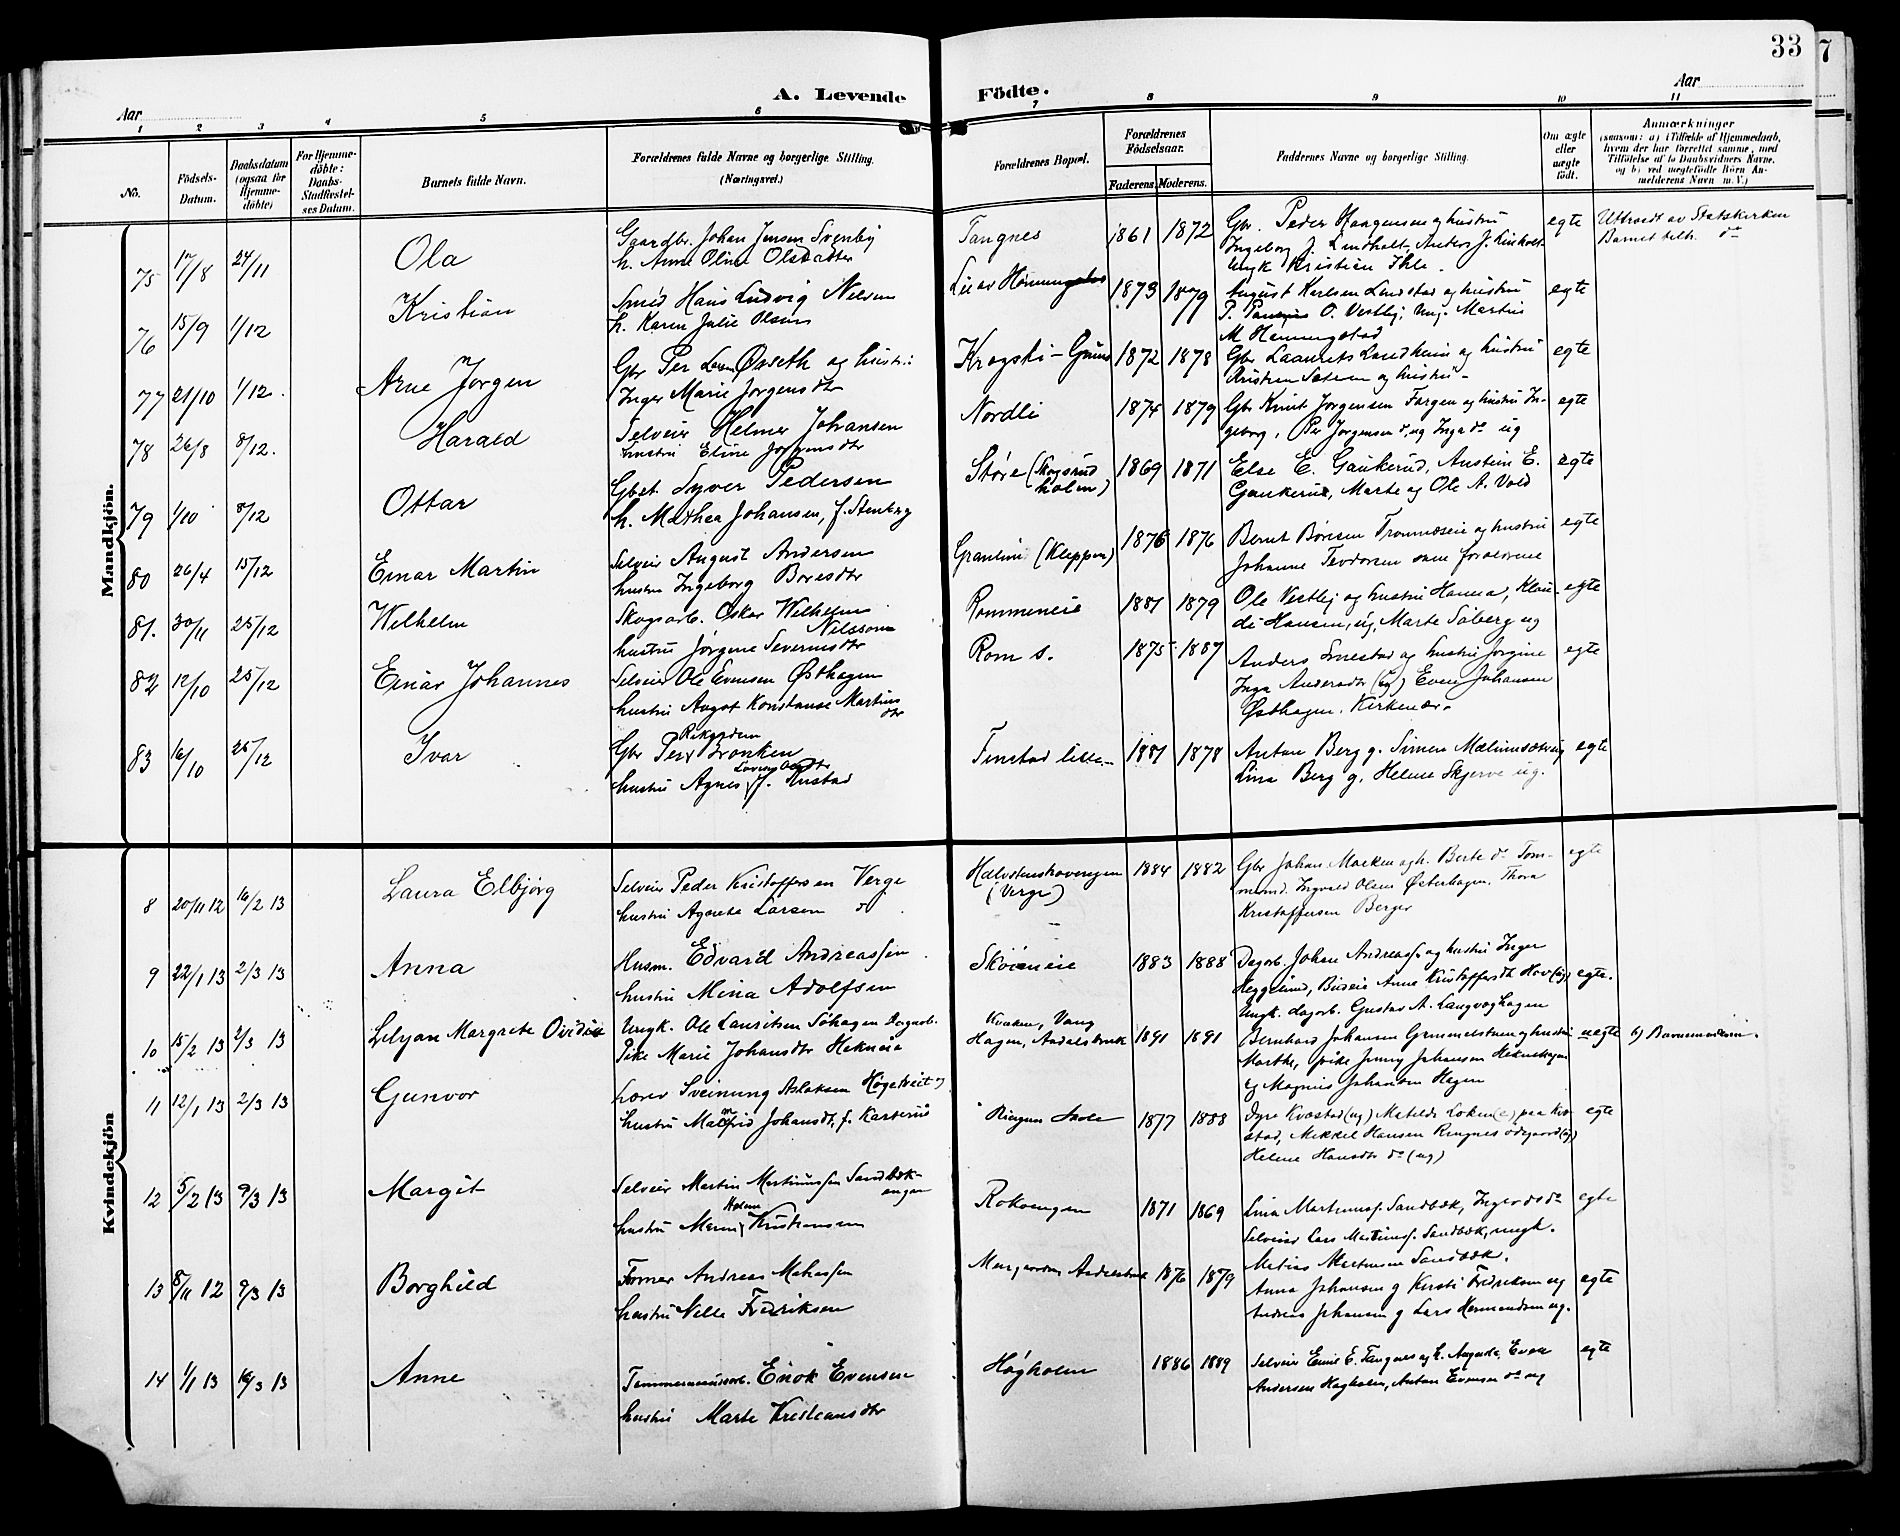 33
7
A. Levende Födte.
Aar
Aar
1 2 3 4 5 6 7 8 9 10 11
No.
Födsels-Datum.
Daabsdatum (ogsaa for Hjemme-döbte)
For Hjemme-döbte: Daabs-Stadfæstel-ses Datum.
Barnets fulde Navn.
Forældrenes fulde Navne og borgerlige Stilling. (Næringsvei.)
Forældrenes Bopæl.
Forældrenes Födselsaar.
Faderens. Moderens.
Faddernes Navne og borgerlige Stilling.
Om ægte eller uægte födt.
Anmærkninger (saasom: a) i Tilfælde af Hjemmedaab, hvem der har forrettet samme, med Tilföielse af to Daabsvidners Navne, og b) ved uægtefödte Börn An-melderens Navn m. V.)
Mandkjön.
75 17/8 24/11 Ola
Gaardbr. Johan Jensen Svenby
h. Anne Oline Olsdatter
Tangnes 1861 1872
Gbr. Peder Haagensen og hustru
Ingeborg J. Lindholt, Anders J. Lindholt
Ungk Kristian Ihle.
egte
Uttraadt av Statskirken
Barnet tilh. do
76 15/9 1/12 Kristian
Smed Hans Ludvig Nilsen
h. Karen Julie Olsen
1873 1879
August Karlsen Lundstad og hustru
P. O. Vestby, ung. Martin
M
egte
77 21/10 1/12. Arne Jorgen
Gbr Per Øvseth og hustru:
Inger Marie Jorgensdtr
1872 1878
Gbr Laurits Lundheim og hustru
Kristian Sætren og hustru
egte
78 26/8 8/12. Harald
Selveier Helmer Johansen
hustru Eline
Nordli 1874 1879
Gbr Knut Jorgensen Fargen og hustru In-
geborg, Per Jorgensen do, og Inga do ug
egte
79 1/10 8/12 Ottar
Gbet. Syver Pedersen
h. Mathea Johansen, f. Stenberg
Støre (Skogsrud
holm)
1869 1871
Else E. Gaukerud, Austein E.
Gaukerud, Marte og Ole A. Vold
egte
80 26/4 15/12 Einar Martin
Selveier August Andersen
hustru Ingeborg Boresdtr
(Kleppen) 1876 1876
Bernt Børesen Trommeseie og hustru
Johanne Teodorsen som foreldrene
egte
81. 30/11 25/12 Wilhelm
Skogsarb. Oskar Wilhelm
Nilsson
hustru Jørgine Severinsdtr
Rommeneie 1881 1879
Ole Vestby og hustru Hanna, Klau-
di Hansen, ug, Marte Søberg ug
egte
82 12/10 25/12 Einar Johannes
Selveier Ole Evensen Østhagen
hustru Aagot Konstanse Martins
dtr
Rom s. 1875 1887
Anders Smestad og hustru Jorgine
Inga Andersdtr (ug) Even Johansen
Østhagen, Kirkenær.
egte
83 16/10 25/12 Ivar
Gbr Per Bronken
hustru Agnes f. Finstad
Finstad lille 1881 1878
Anton Berg g. Simen
Lina Berg g, Helene Skjerve ug.
egte
Kvindekjön
8 20/11 12 16/2 13 Laura Elbjörg
Selveier Peder Kristoffersen Verge
hustru Agnete Larsen do
(Verge)
1884 1882
Gbr Johan Moeken og h. Berte do Tom-
mund. Ingvald Olsen Østerhagen. Thora
Kristoffersen Berger
egte
9 22/1 13 2/3 13 Anna
Husm. Edvard Andreassen
hustru Mina Adolfsen
Skoieneie 1883 1888
Dagarb. Johan Andreass. og hustru Inger
Heggelund, Budeie Anne Kristoffersdt Hov (ug)
Ungk. dagarb. Gustav A. Langvaghagen
egte.
10 15/2 13 2/3 13 Lilyan Margrete Ovidia
Ungk. Ole Lauritsen Søhagen Dagarb.
Pike Marie Johansdtr Hekneia
Kvaken, Vang
Hagen, Aadalsbruk 1891 1891
Bernhard Johansen og hustru
Marthe, pike Jenny Johansen Heknehagen
og Magnus Johansen Hagen
uegte
b) Barnemoderen.
11 12/1 13 2/3 13 Gunvor
Lærer Sveinung Aslaksen Høgetveit og
hustru Malfrid Johansdt, f. Karterud
Ringnes Skole 1877 1888
Dyre Kvæstad (ug) Matilde Loken (e) paa Kvæ-
stad, Mikkel Hansen Ringnes ødegaard (ug)
Helene Hansdtr do (ug)
egte
12 5/2 13 9/3 13 Margit
Selveier Martin Martinussen Sandbæk-
engen
hustru Maren Kristiansen
Rokoengen 1871 1869
Lina Martinuss. Sandbæk, Inger do
Selveier Lars Martinuss. Sandbæk, ungk.
Matias Martinsen Sandbæk.
egte
13 8/11 12 9/3 13 Borghild
Former Andreas
hustru Nelle Fredriksen
Aadalsbruk 1876 1879
Anna Johansen g Kirsti Fredriksen ug
Andreas Johansen g Lars Hermandsen ug.
egte
14 1/1 13 16/3 13 Anne
Enok Evensen
hustru Marte Kristiansdtr
Høgholm 1886 1889
Selveier Emil E. Tangnes og h. Augusta, Even
Andersen Høgholm, Anton Evensen do ug
egte